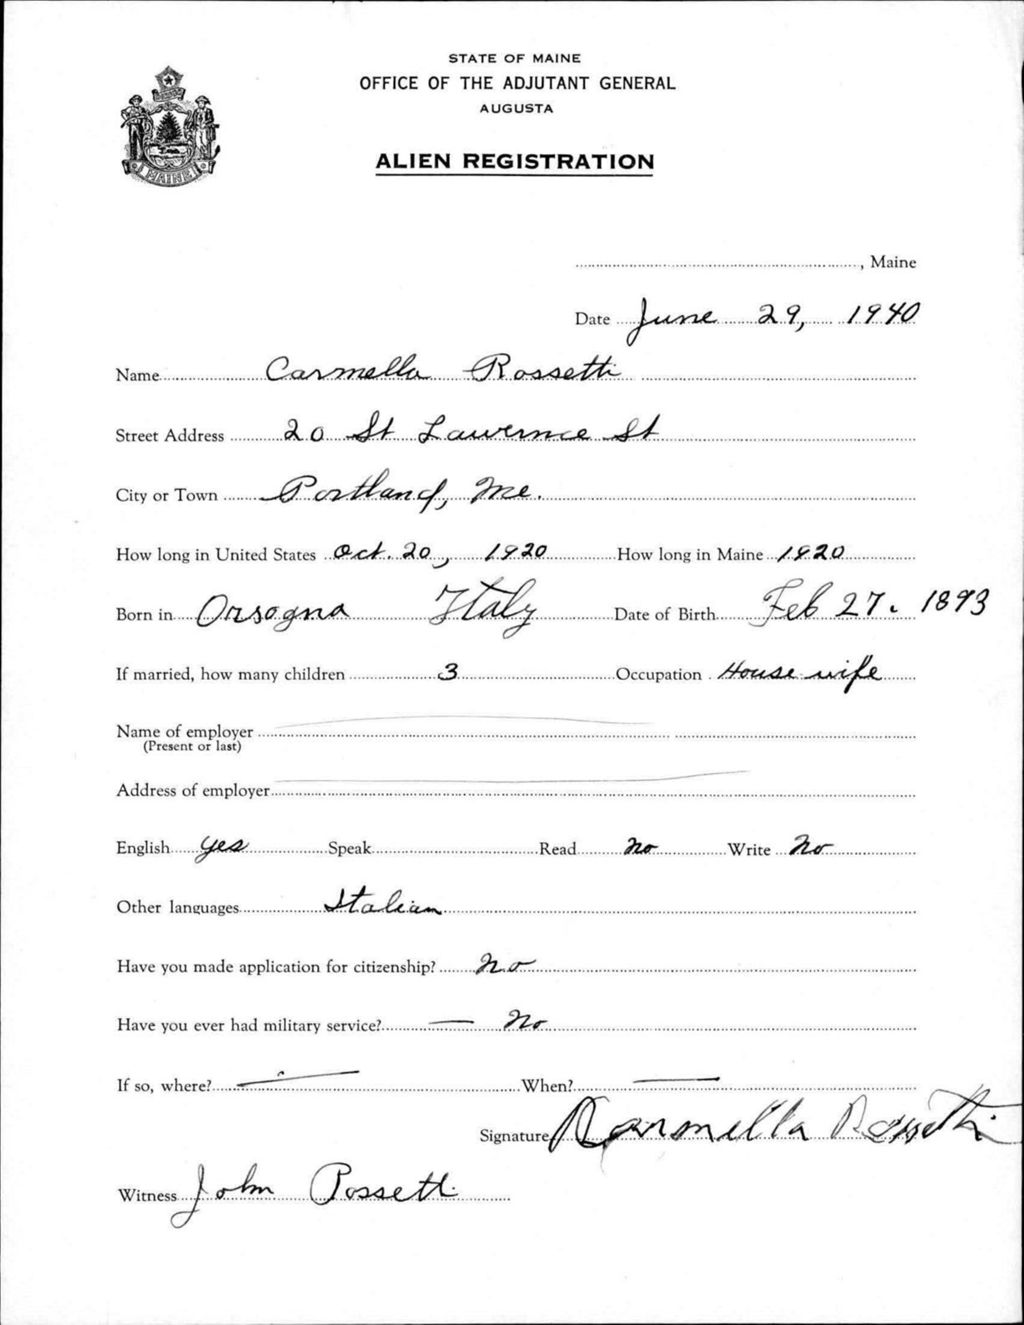 STATE OF MAINE
OFFICE OF THE ADJUTANT GENERAL
AUGUSTA
ALIEN REGISTRATION
MAINE
, Maine
Date June 29, 1940
Name Carmella Rossetti
Street Address 20 St Lawernce St
City or Town Portland, Me.
How long in United States Oct. 20, 1920 How long in Maine 1920
Born in Orsogna Italy Date of Birth Feb 27. 1893
If married, how many children 3 Occupation House wife
Name of employer
(Present or last)
Address of employer
English yes Speak Read No Write No
Other languages Italian
Have you made application for citizenship? No
Have you ever had military service? — No
If so, where? — When? —
Signature Carmella Rossetti
Witness John Rossetti